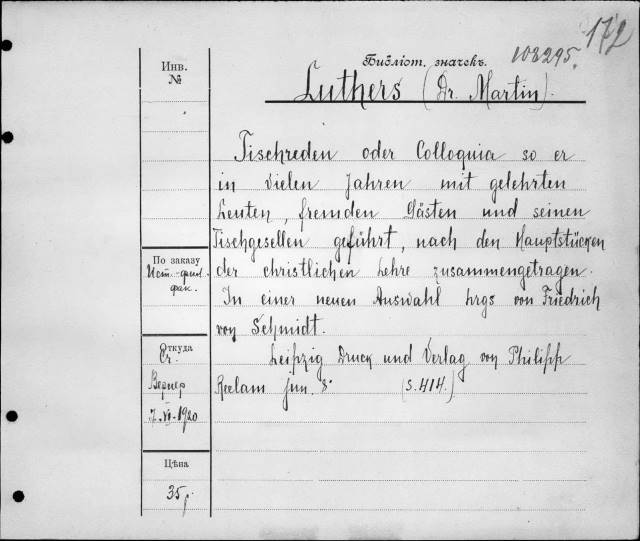 172
108295.
Библіот. значекъ.
Luthers (Dr. Martin).
Инв.
№
Tischreden oder Colloquia so er
in vielen Jahren mit gelehrten
Leuten, fremden Gästen und seinen
Tischgesellen geführt, nach den Hauptstücken
der christlichen Lehre zusammengetragen.
In einer neuen Auswahl hrgs von Friedrich
von Schmidt.
Leipzig Druck und Verlag von Philipp
Reclam jun. 8° (S. 414.)
По заказу
Ист.-фил.
фак.
Откуда
Ст.
Вернер
7.VI.1920
Цѣна
35 р.